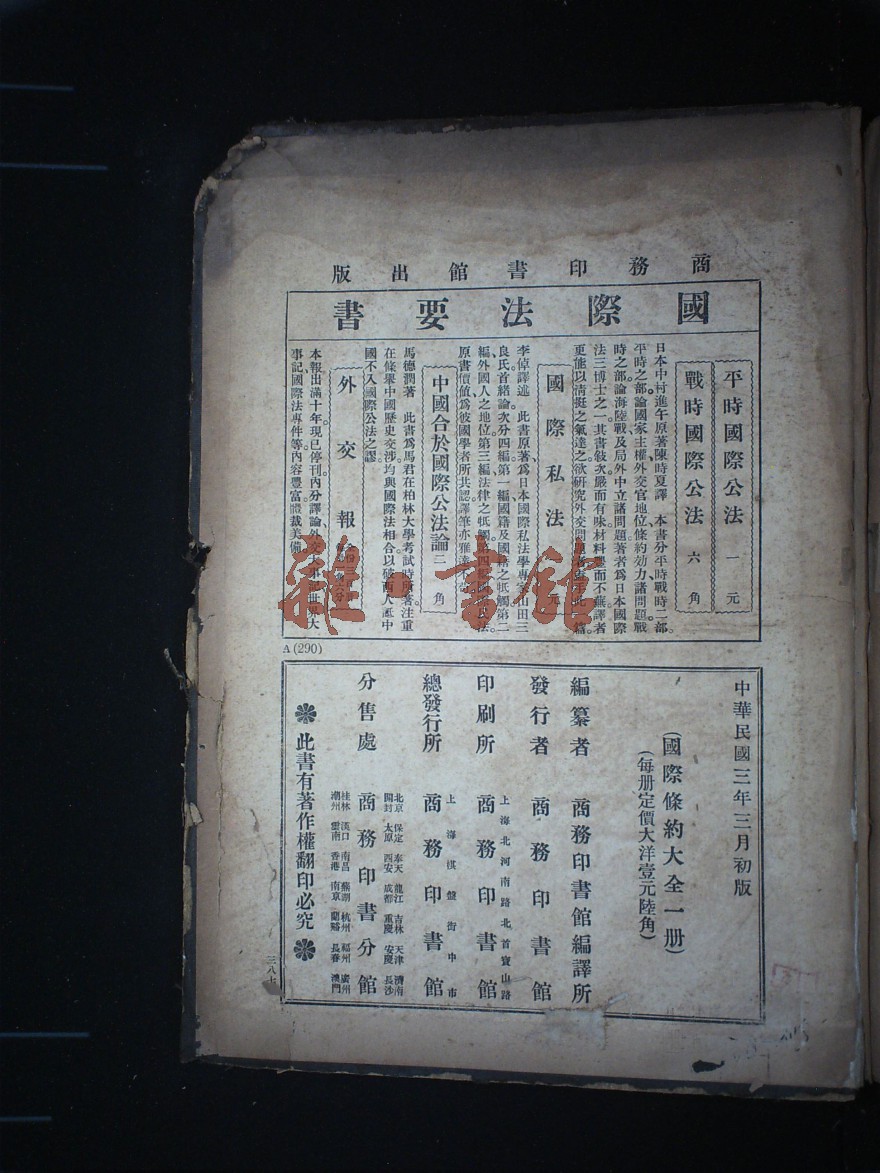 商務印書館出版
國際法要書
平時國際公法 一元
戰時國際公法 六角
日本中村進午原著陳時夏譯 本書分平時戰時二部
平時之部論國家主權外交官地位條約効力諸問題戰
時之部論海陸戰及局外中立諸問題著者爲日本國際
法三博士之一其書敍次嚴而有味材料豐而不蕪譯者
更能以淸挺之氣達之欲研究外交問題者
國際私法 元
李倬譯述 此書原著爲日本國際私法學專家山田三
良氏首緒論次分四編第一編國籍及國籍之牴觸第二
編外國人之地位第三編法律之牴觸第四編
原書價值爲彼國學者所共認譯筆亦雅
中國合於國際公法論 二角
馬德潤著 此書爲馬君在柏林大學考試時所著注重
在條舉中國歷史交涉均與國際法相合以破西人詆中
國不入國際公法之謬
外交報
本報出滿十年現已停刊內分譯論外交大事記世界大
事記國際法專件等內容豐富體裁美備
A(290)
中華民國三年三月初版
(國際條約大全一册)
(每册定價大洋壹元陸角)
編纂者 商務印書館編譯所
發行者 商務印書館
上海北河南路北首寶山路
印刷所 商務印書館
上海棋盤街中市
總發行所 商務印書館
北京 保定 奉天 龍江 吉林 天津 濟南
開封 太原 西安 成都 重慶 安慶 長沙
分售處 商務印書分館
桂林 漢口 南昌 蕪湖 杭州 福州 廣州
潮州 雲南 香港 南京 蘭谿 長春 澳門
此書有著作權翻印必究
三八七
雜書館